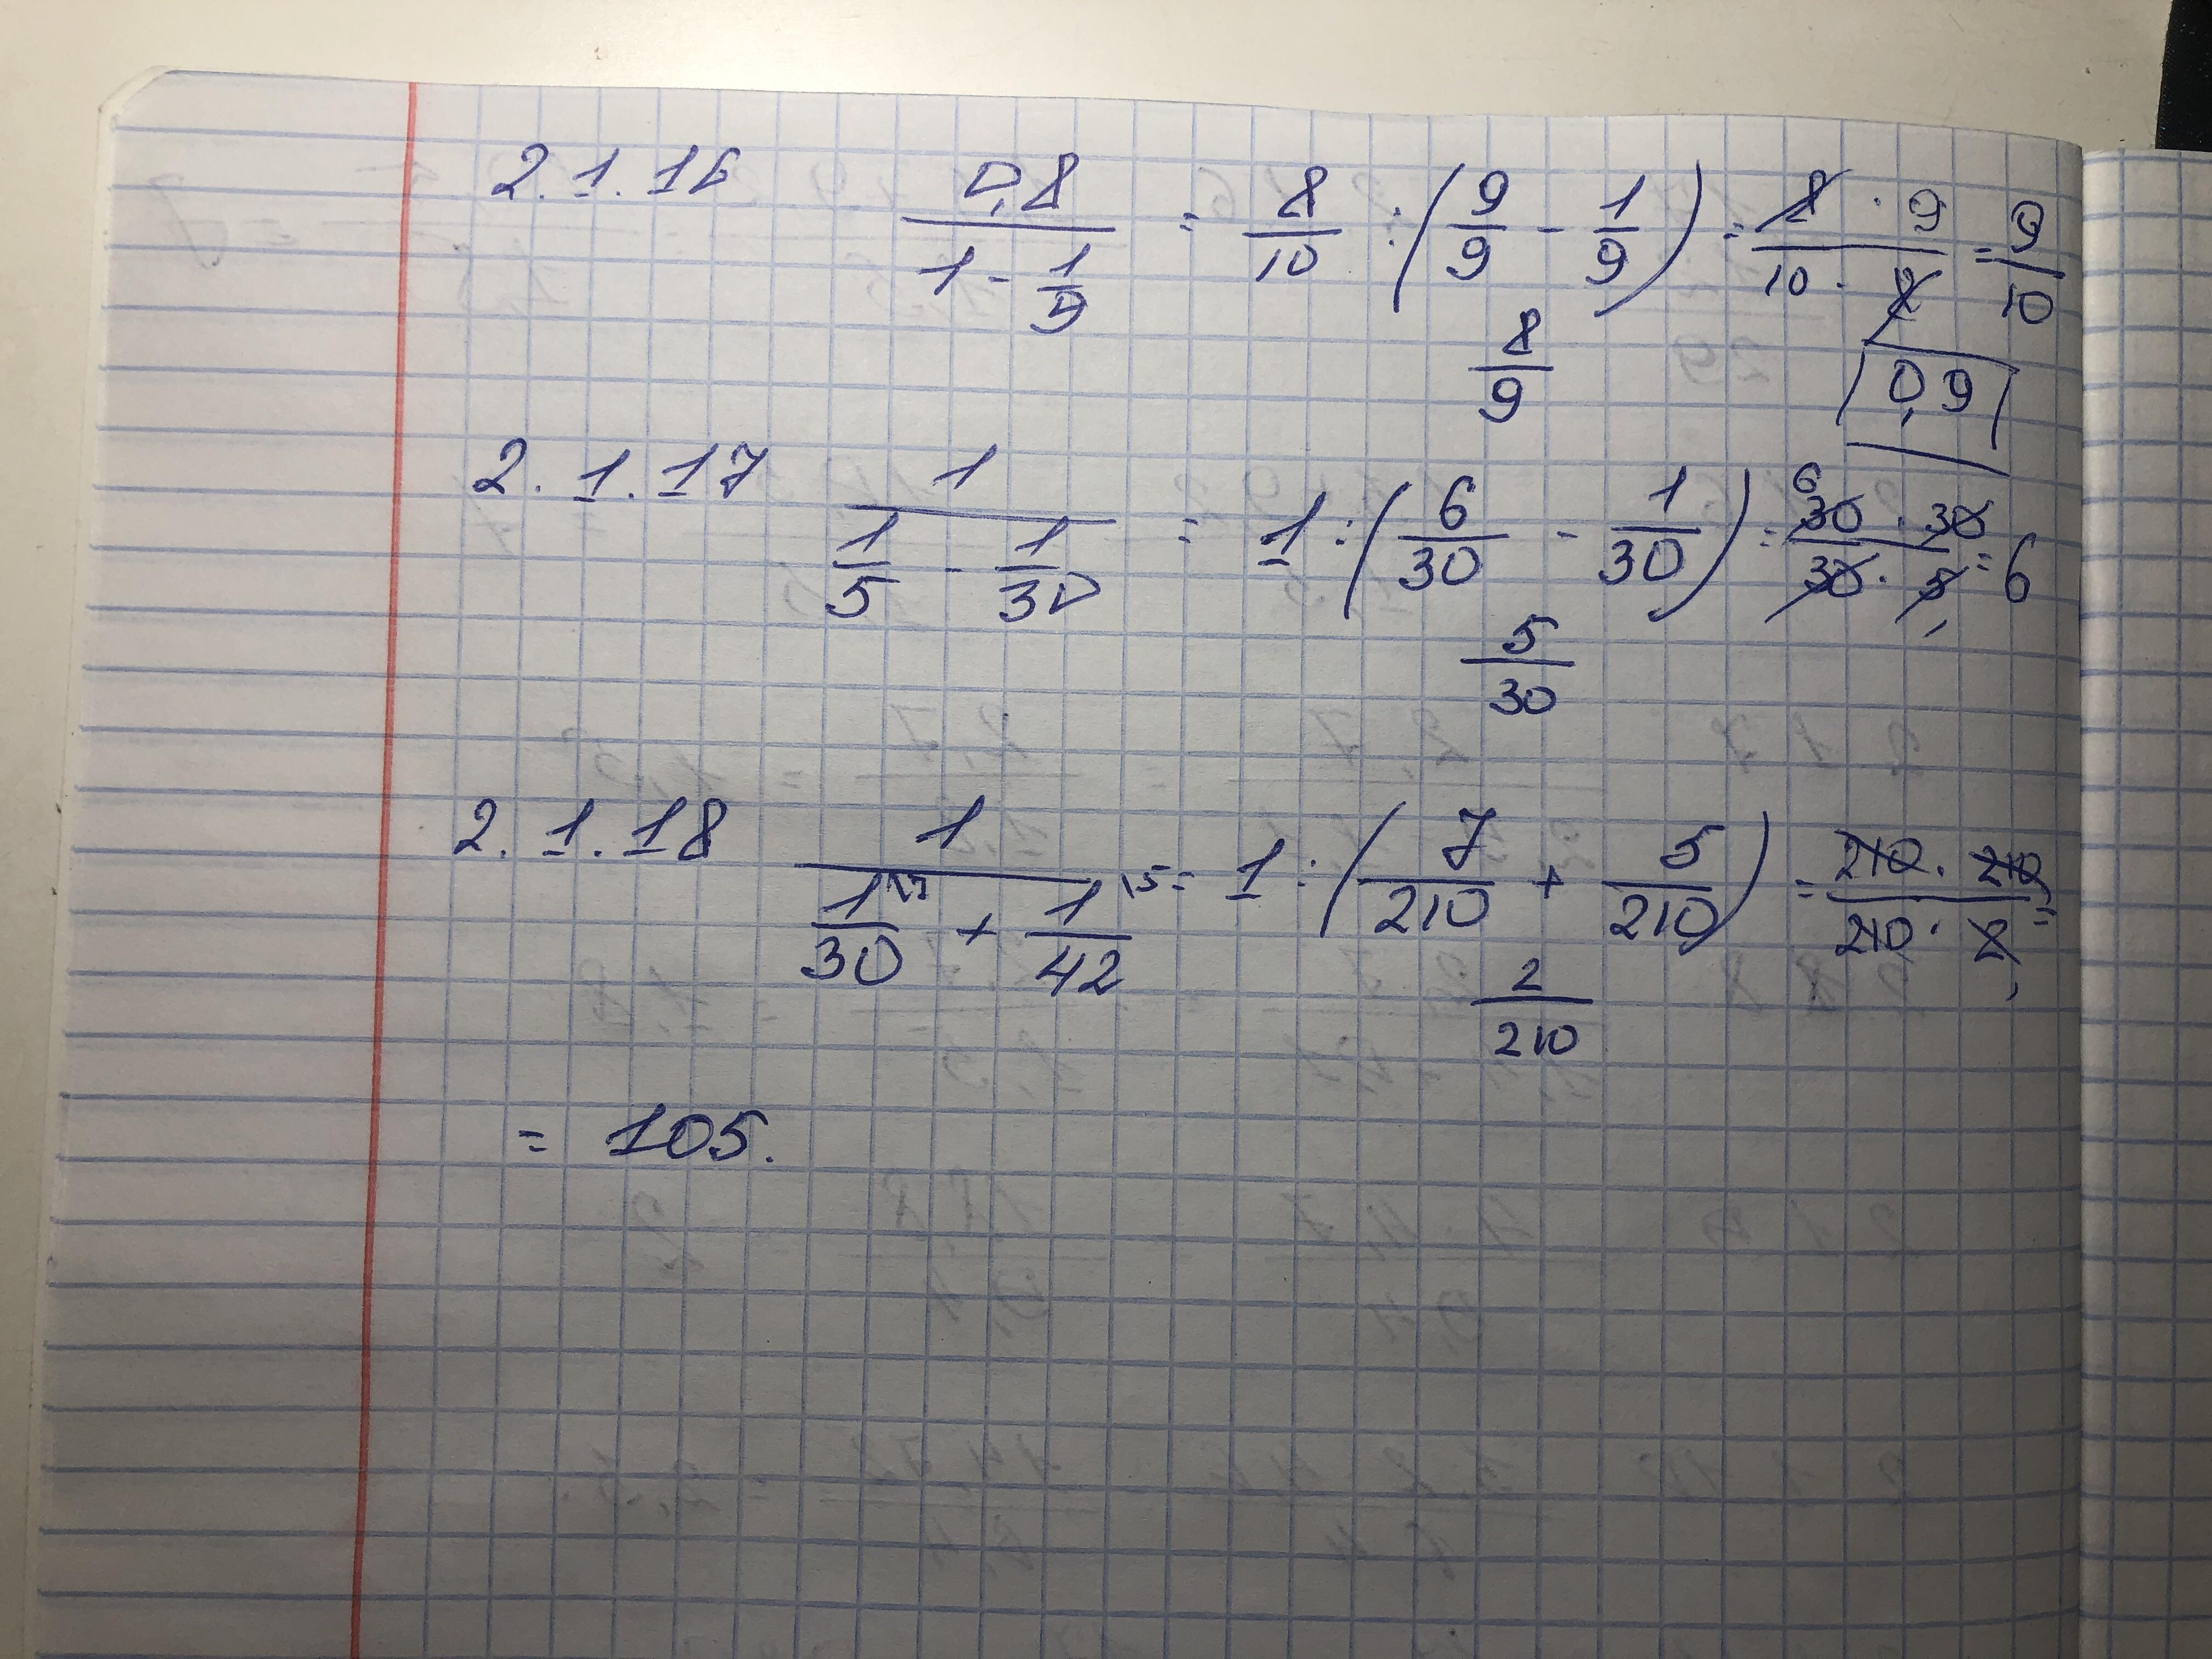 2.1.16 0,8/(1 - 1/9) = 8/10 : (9/9 - 1/9) = (8 · 9)/(10 · 8) = 9/10
8/9 0,9
2.1.17 1/(1/5 - 1/30) = 1 : (6/30 - 1/30) = (30 · 30)/(30 · 5) = 6
6 1
5/30
2.1.18 1/(1/30 \7 + 1/42 \5) = 1 : (7/210 + 5/210) = (210 · 210)/(210 · 2) =
2/210 1
= 105.